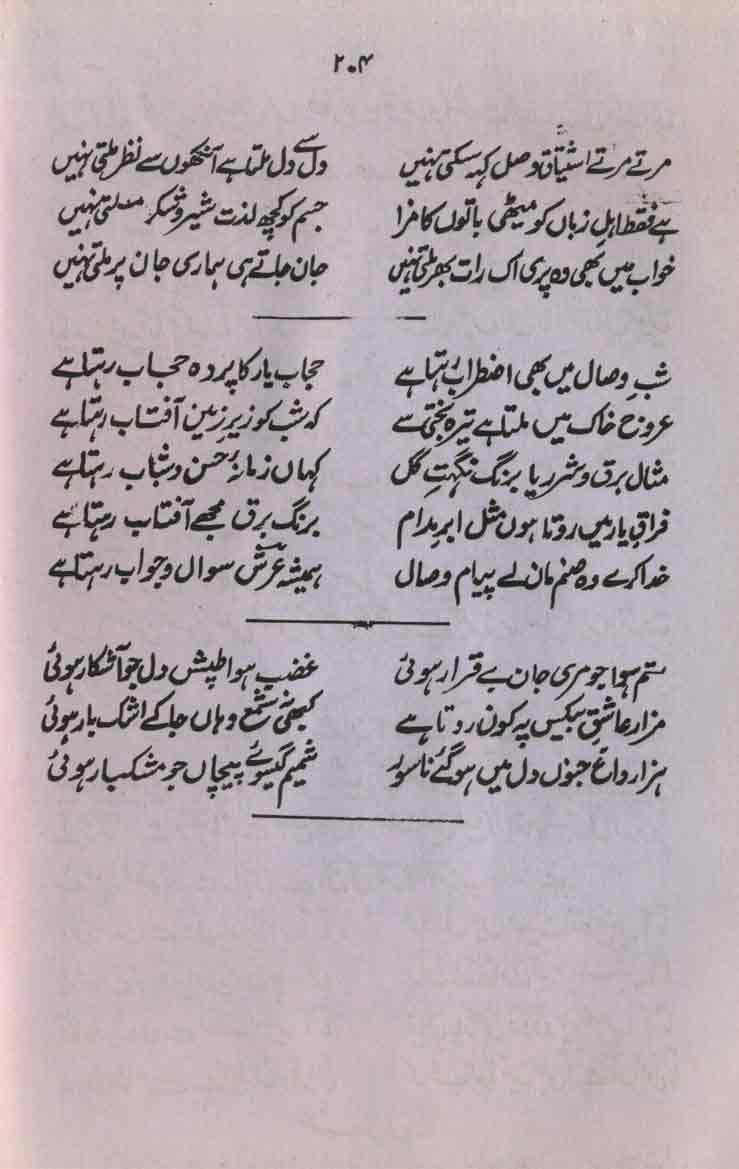 ۲۰۴
مرتے مرتے اشتیاق وصل کہہ سکتی نہیں دل سے دل ملتا ہے آنکھوں سے نظر ملتی نہیں
ہے فقط اہلِ زباں کو میٹھی باتوں کا مزا جسم کو کچھ لذت شیر و شکر ملتی نہیں
خواب میں بھی وہ پری اک رات بھر ملتی نہیں جان جاتے ہی ہماری جان پر ملتی نہیں
شبِ وصال میں بھی اضطراب رہتا ہے حجاب یار کا پردہ حجاب رہتا ہے
عروج خاک میں ملتا ہے تیرہ بختی سے کہ شب کو زیرِ زمین آفتاب رہتا ہے
مثال برق و شرر یا برنگ نگہتِ گل کہاں زمانۂ حسن و شباب رہتا ہے
فراقِ یار میں روتا ہوں مثل ابرِ مدام برنگ برق مجھے آفتاب رہتا ہے
خدا کرے وہ صنم مان لے پیام وصال ہمیشہ عرش سے سوال و جواب رہتا ہے
ستم ہوا جو مری جان بے قرار ہوئی غضب ہوا طپش دل جو آشکار ہوئی
مزار عاشقِ بیکس پہ کون روتا ہے کبھی نہ شمع وہاں جا کے اشک بار ہوئی
ہزار داغ جنوں دل میں ہو گئے ناسور شمیم گیسوئے پیچاں جو مشکبار ہوئی